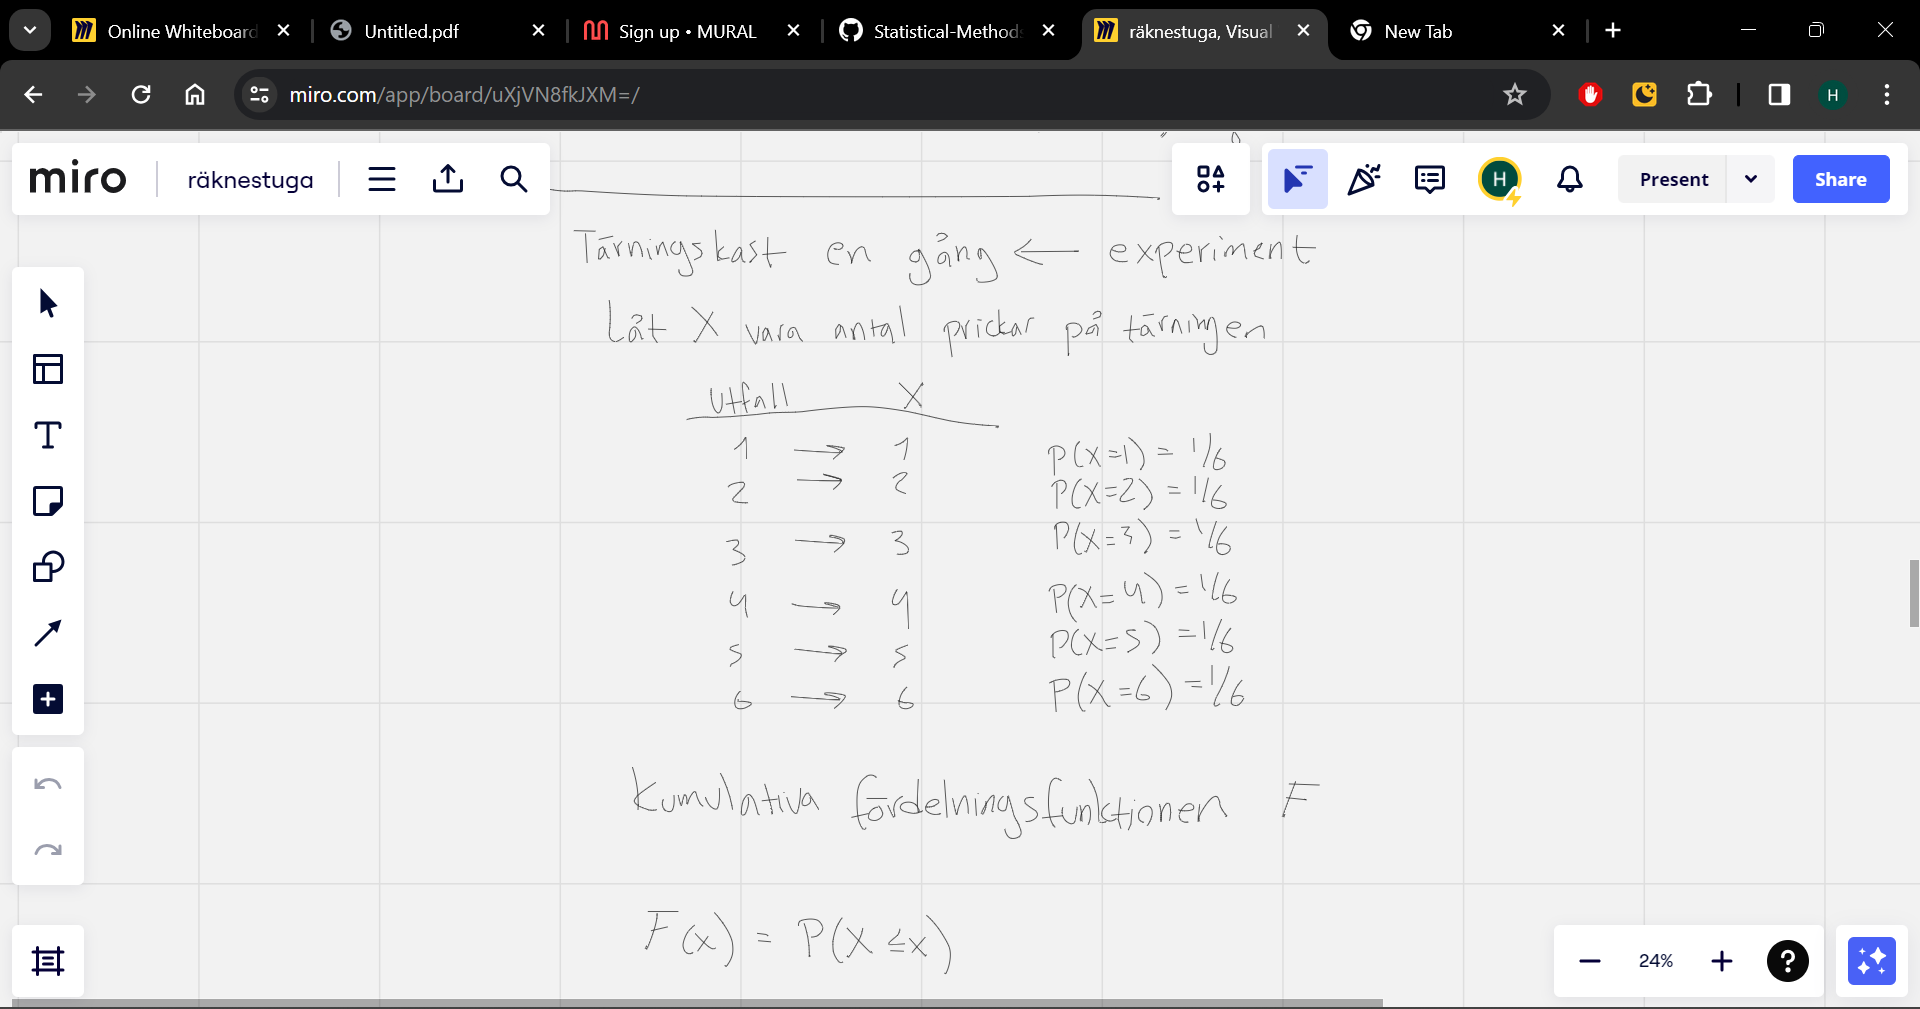 Online Whiteboard
Untitled.pdf
Sign up • MURAL
Statistical-Methods
räknestuga, Visual
New Tab
miro.com/app/board/uXjVN8fkJXM=/
H
miro
räknestuga
H
Present
Share
Tärningskast en gång ← experiment
Låt X vara antal prickar på tärningen
Utfall X
1 → 1 P(X=1) = 1/6
2 → 2 P(X=2) = 1/6
3 → 3 P(X=3) = 1/6
4 → 4 P(X=4) = 1/6
5 → 5 P(X=5) = 1/6
6 → 6 P(X=6) = 1/6
Kumulativa fördelningsfunktionen F
F(x) = P(X ≤ x)
24%